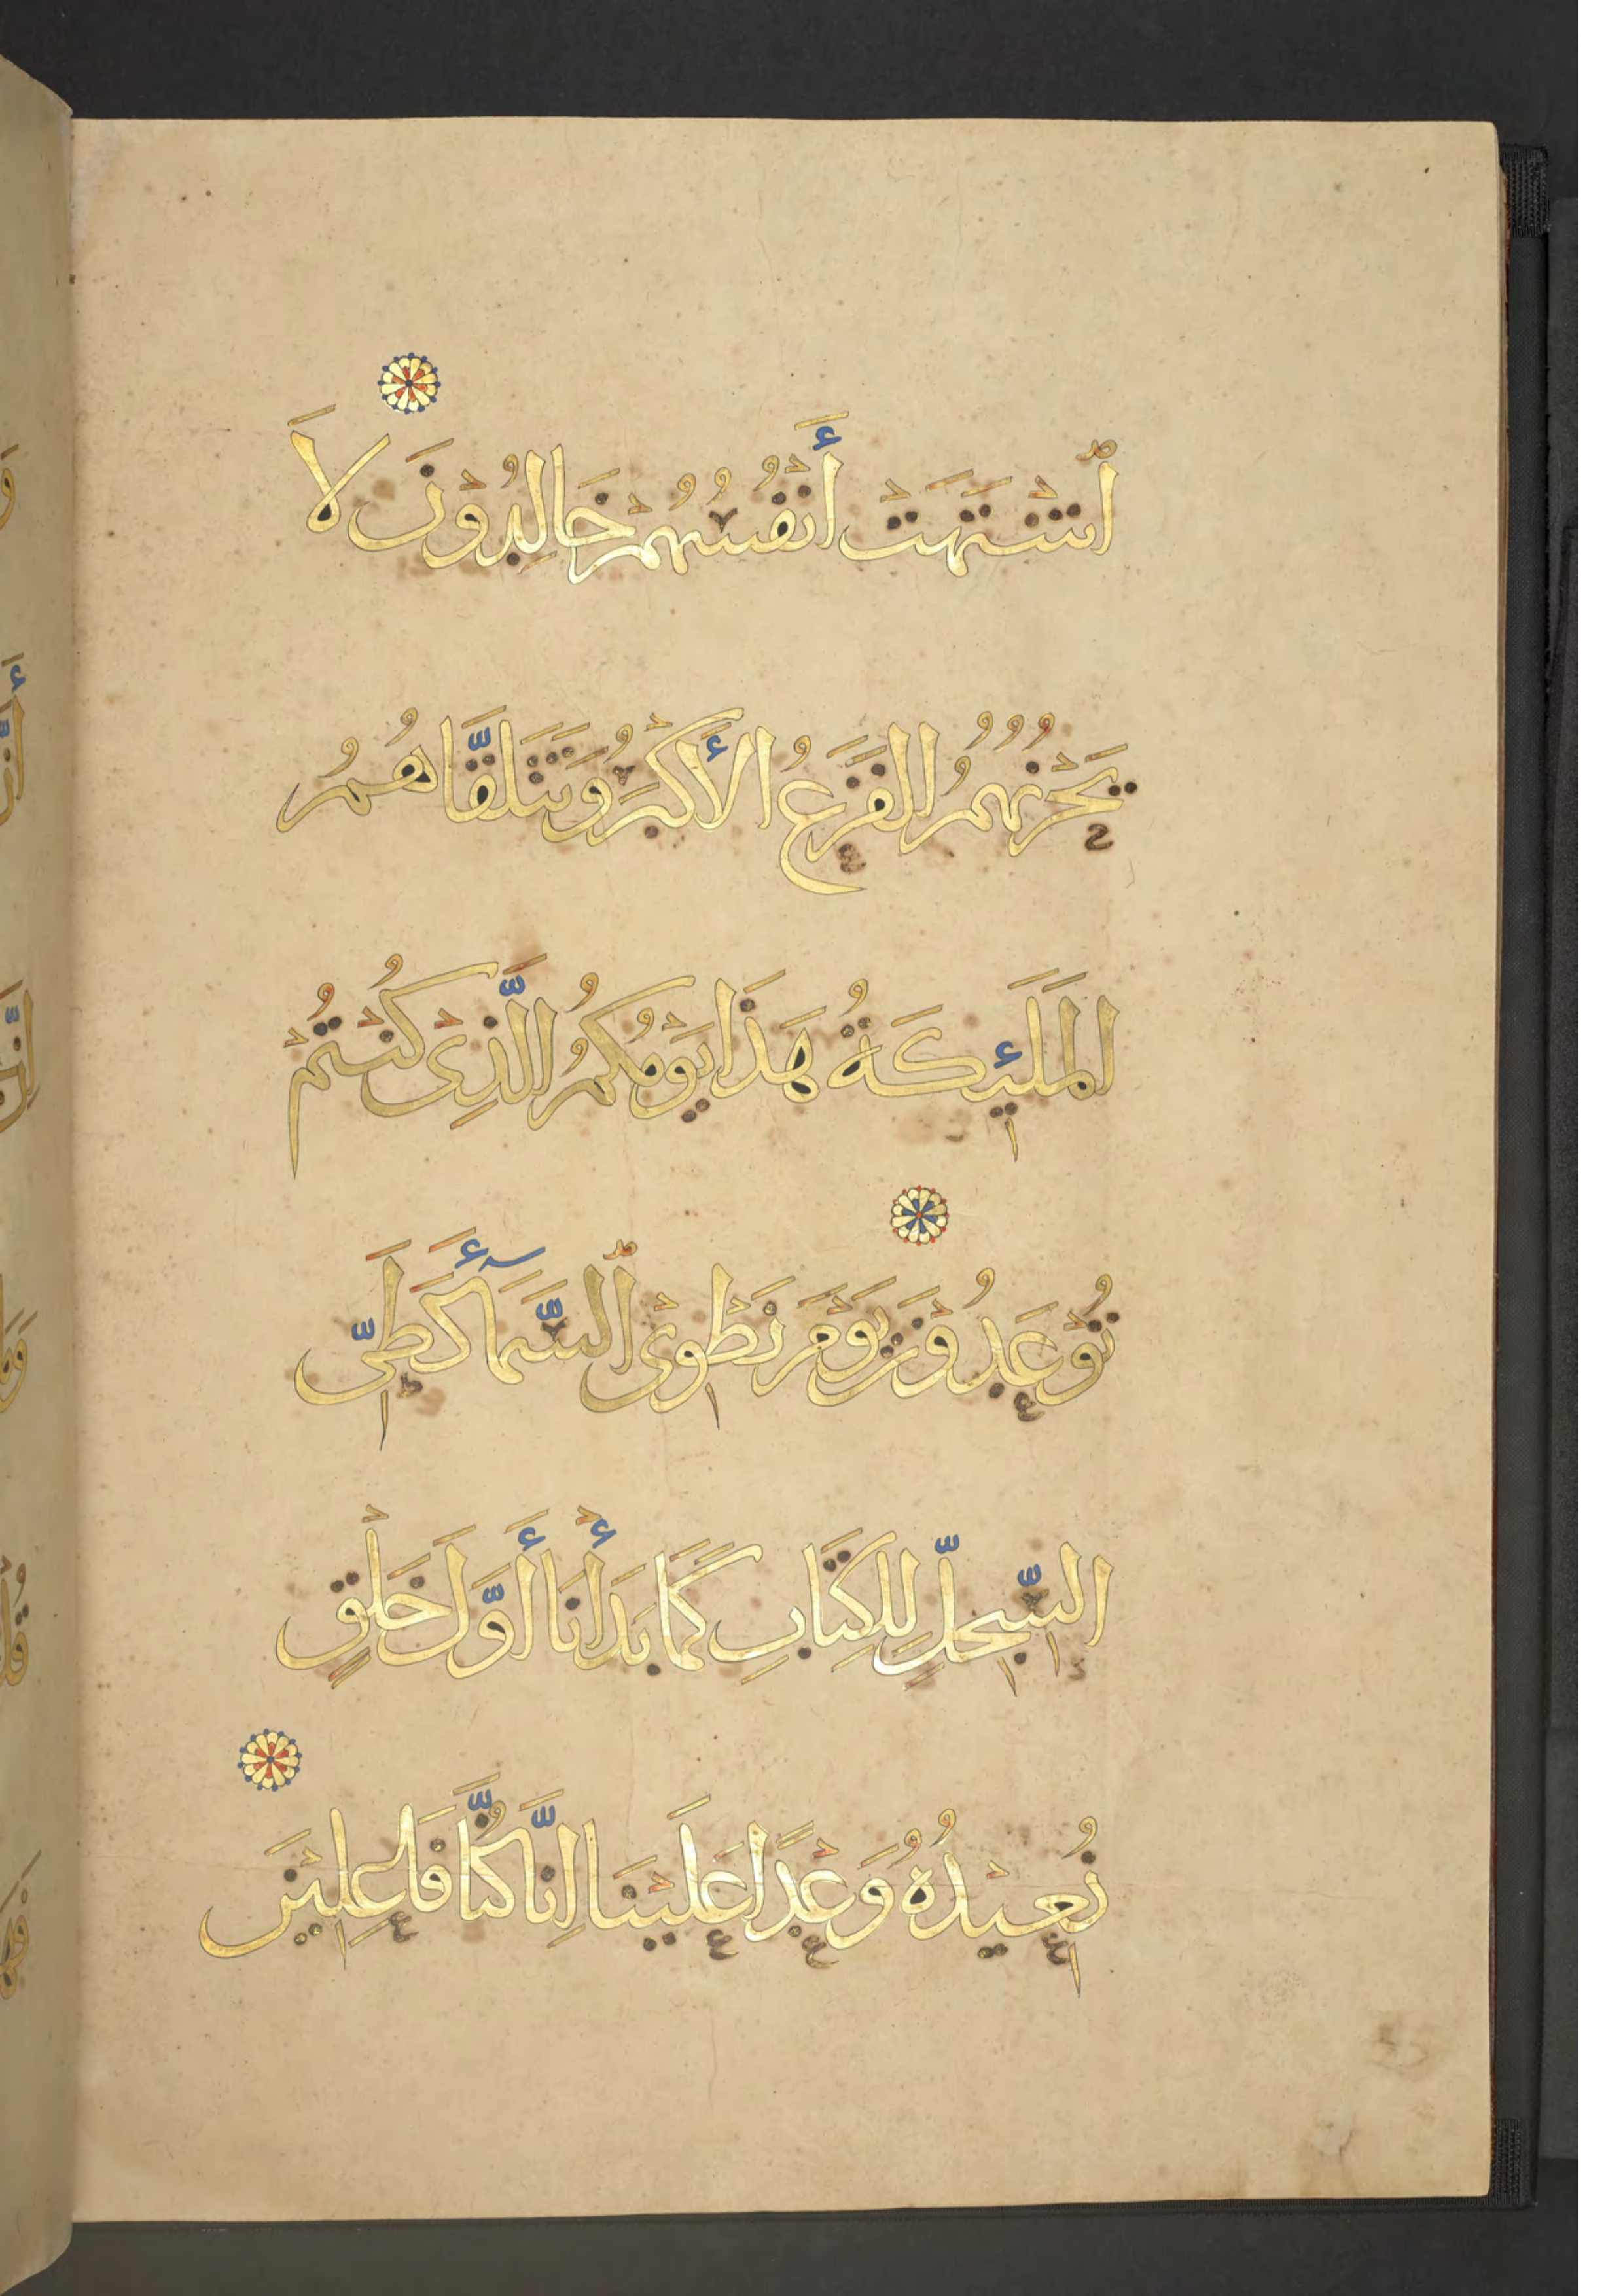 ٱشْتَهَتْ أَنْفُسُهُمْ خَالِدُوْنَ لَا
يَحْزُنُهُمُ الفَزَعُ الأَكْبَرُ وَتَتَلَقَّاهُمُ
المَلَئِكَةُ هَذَا يَوْمُكُمُ الَّذِىْ كُنْتُمْ
تُوْعَدُوْنَ يَوْمَ نَطْوِىْ ٱلسَّمَآءَ كَطَىِّ
السِّجِلِّ لِلكِتَابِ كَمَا بَدَأْنَا أَوَّلَ خَلْقٍ
نُعِيْدُهُ وَعْدًا عَلَيْنَا اِنَّا كُنَّا فَاعِلِيْنَ